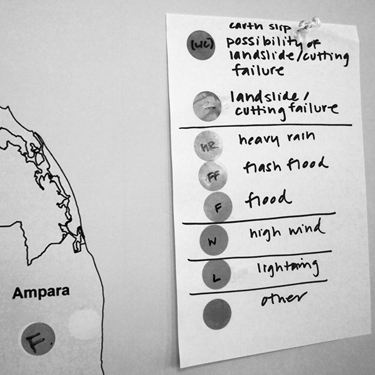 earth slip
(WC) possibility of
landslide/cutting
failure
landslide/
cutting failure
HR heavy rain
FF flash flood
F flood
W high wind
L lightning
other
Ampara
F.